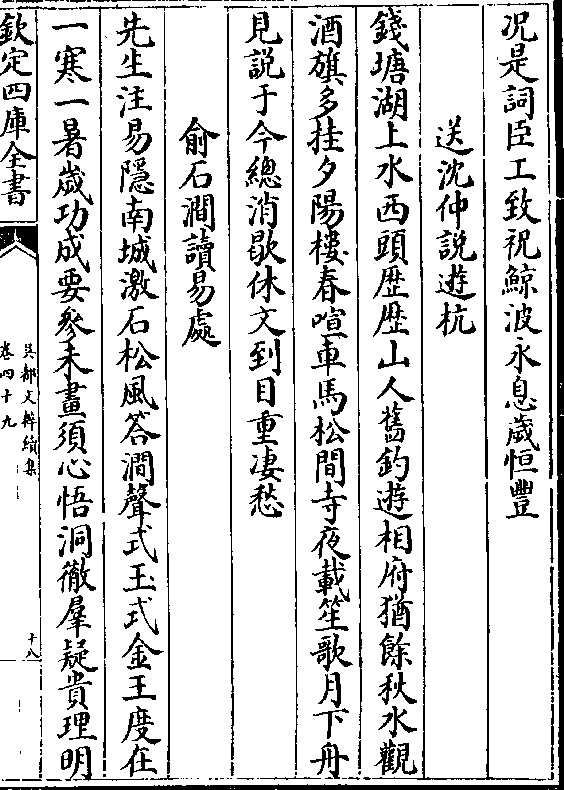 况是詞臣工致祝鯨波永息歲恒豐
送沈仲說遊杭
錢塘湖上水西頭歷歷山人舊釣遊相府猶餘秋水觀
酒旗多挂夕陽樓春喧車馬松間寺夜載笙歌月下舟
見説于今總消歇休文到日重凄愁
俞石澗讀易處
先生注易隱南城激石松風答澗聲式玉式金王度在
一寒一暑歲功成要叅未畫須心悟洞徹羣疑貴理明
欽定四庫全書
吳都文粹續集
卷四十九
十八